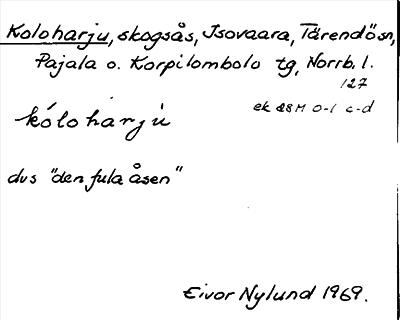 Koloharju, skogsås, Isovaara, Tärendö sn,
Pajala o. Korpilombolo tg, Norrb. l.
127
ek 28M 0-1 c-d
kóloharjù
dvs "den fula åsen"
Eivor Nylund 1969.